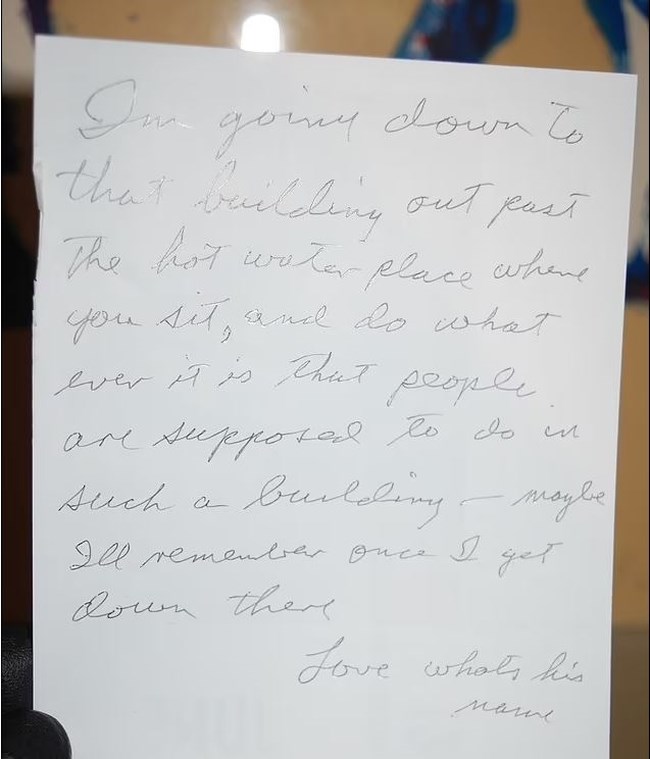 Im going down to
that building out past
the hot water place where
you sit, and do what
ever it is that people
are supposed to do in
such a building – maybe
Ill remember once I get
down there
Love whats his
name